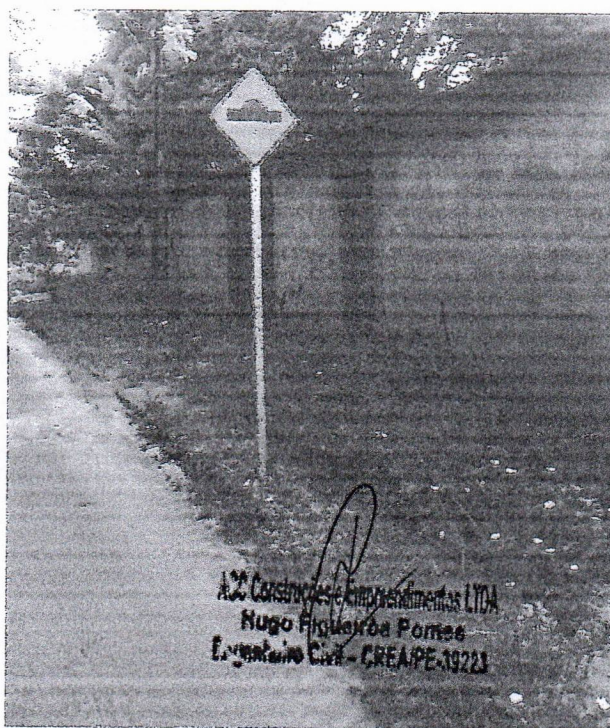 A2C Construções e Empreendimentos LTDA
Hugo Figueirôa Pontes
Engenheiro Civil - CREA/PE-39223